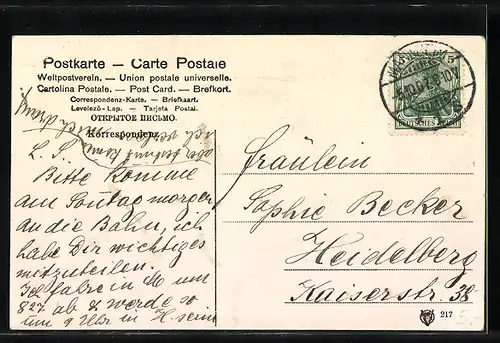 Postkarte — Carte Postale
Weltpostverein. — Union postale universelle.
Cartolina Postale. — Post Card. — Brefkort.
Correspondenz-Karte. — Briefkaart.
Levelező-Lap. — Tarjeta Postal.
ОТКРЫТОЕ ПИСЬМО.
Korrespondenz.
L. S.
Bitte komme
am Sontag morgen
an die Bahn, ich
habe Dir wichtiges
mitzuteilen.
Ich fahre in M um
827 ab & werde
um 9 Uhr in H sein
aber bestimt
Fräulein
Sophie Becker
Heidelberg
Kaiserstr. 38
217